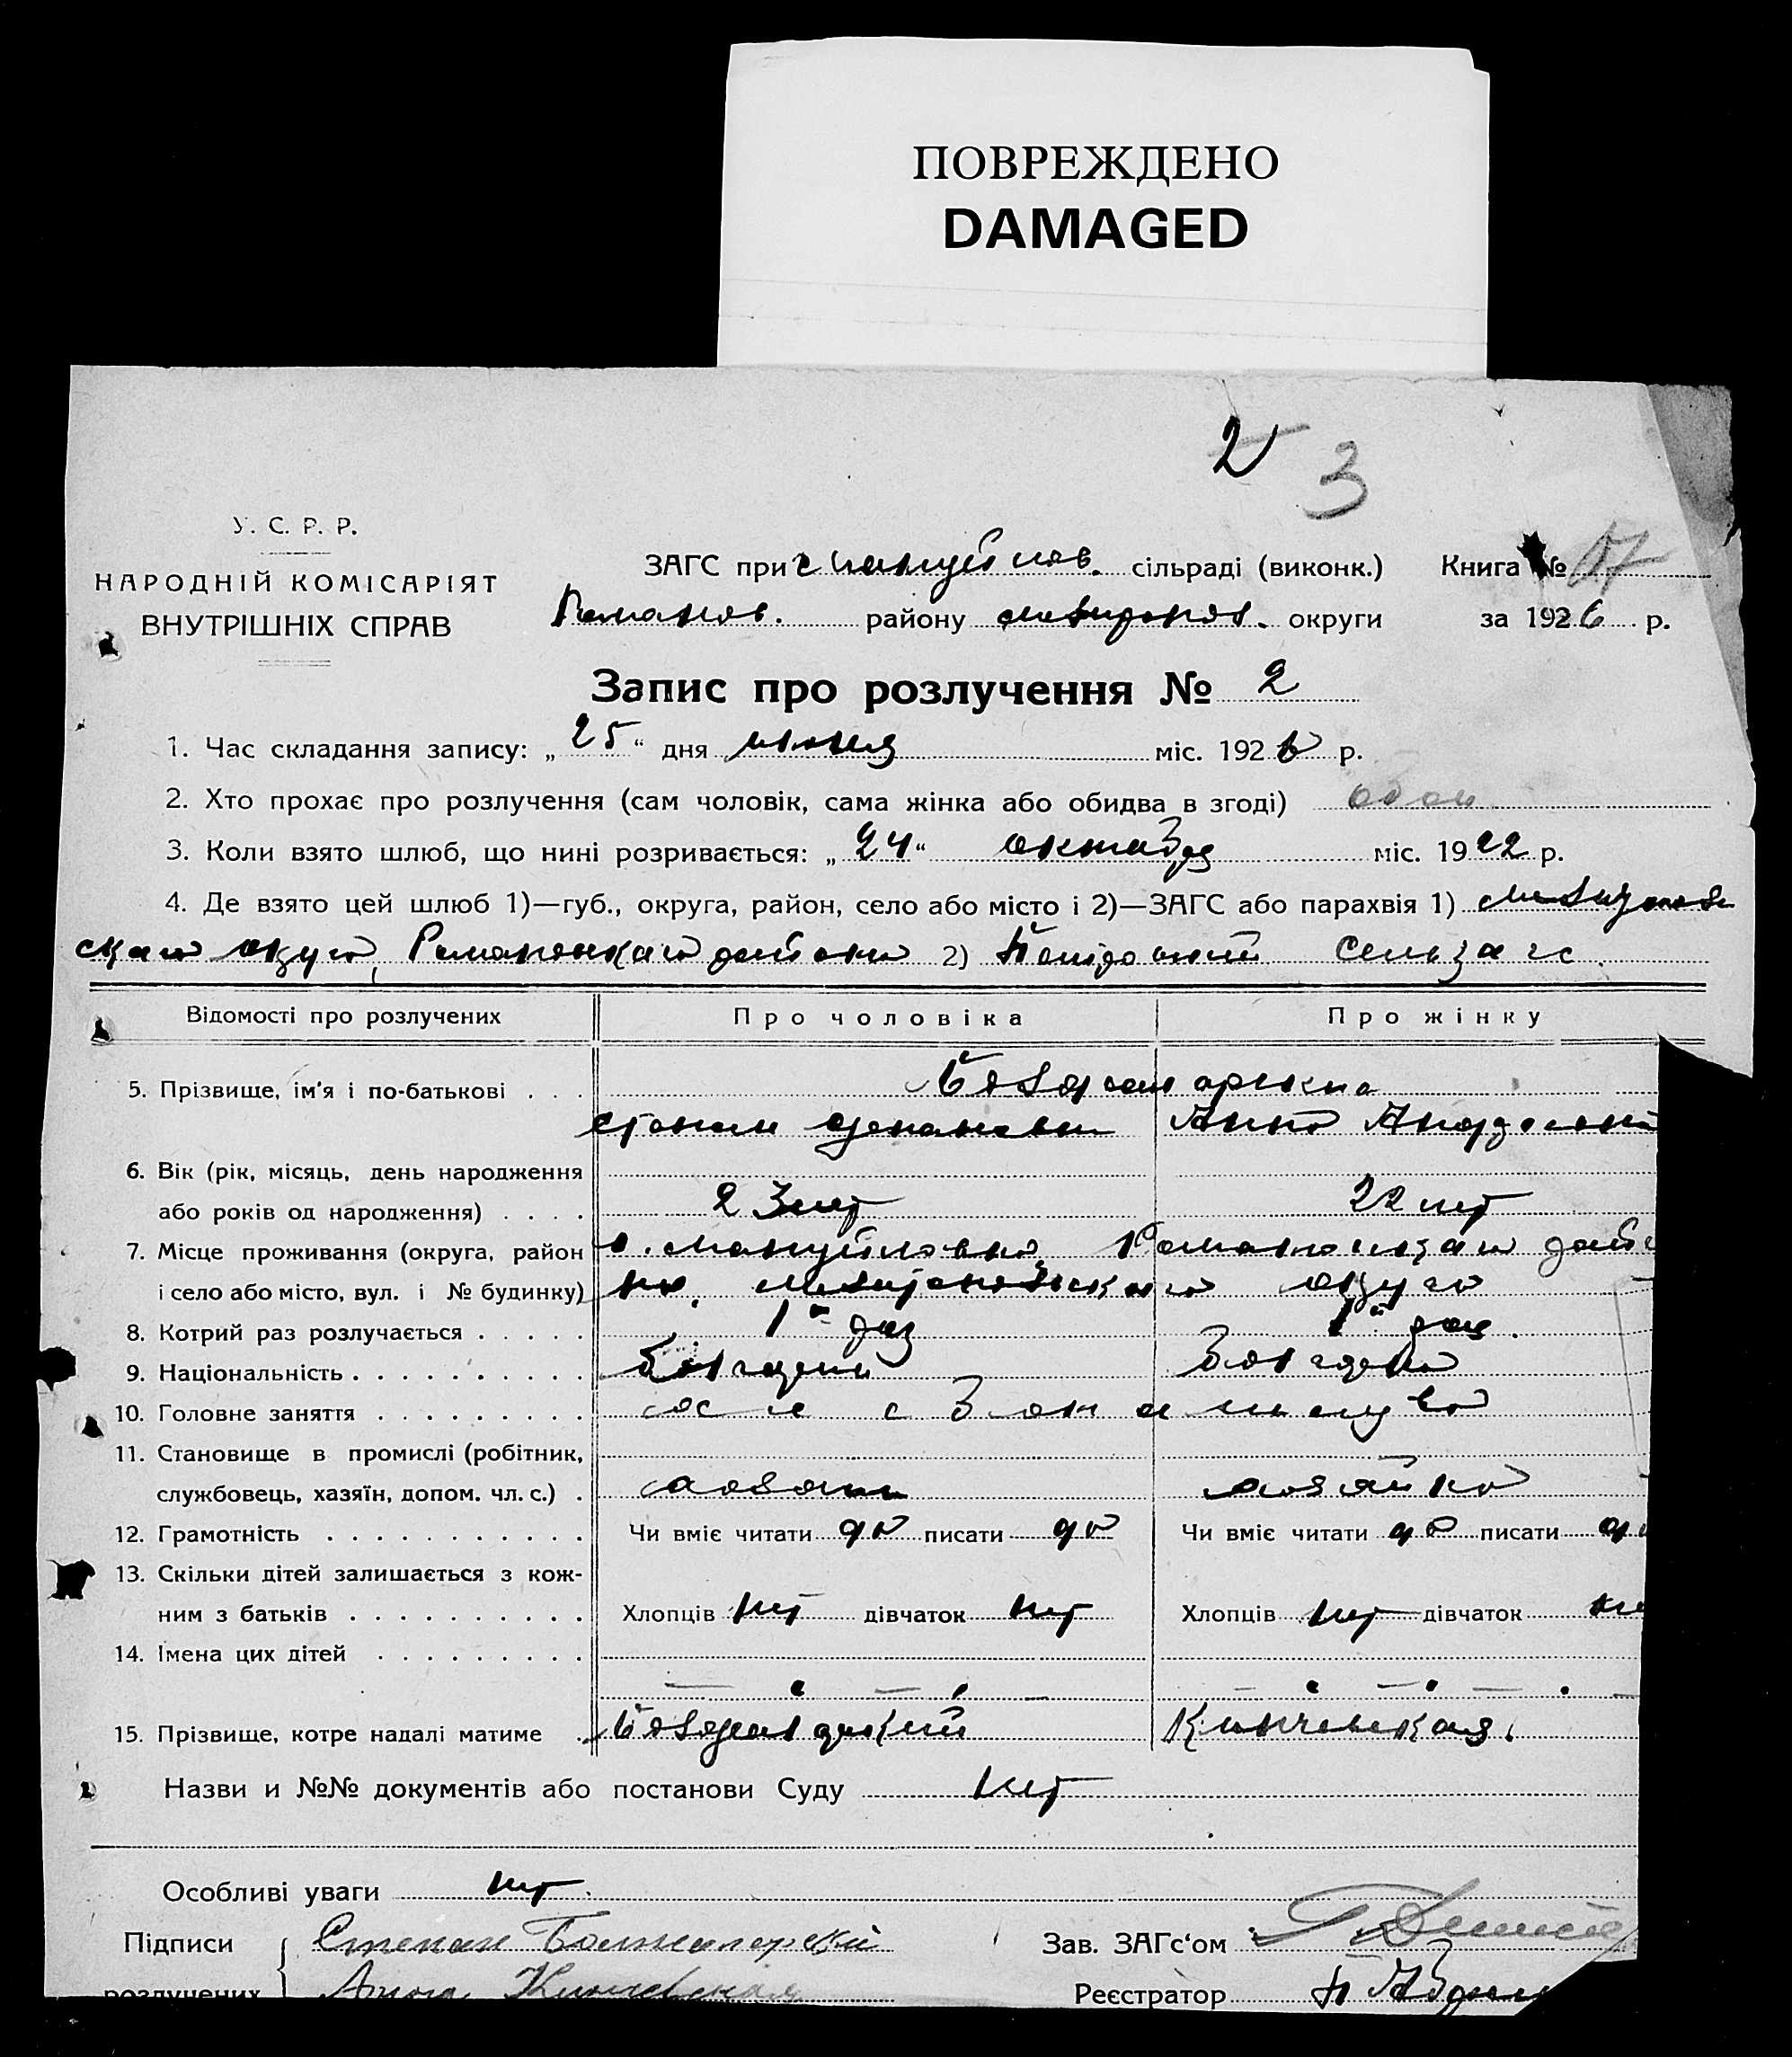 ПОВРЕЖДЕНО
DAMAGED
2
3
У. С. Р. Р.
НАРОДНІЙ КОМІСАРІЯТ
ВНУТРІШНІХ СПРАВ
ЗАГС при с Мануйлов. сільраді (виконк.) Книга №
Романов. району мелитопол. округи за 1926 р.
Запис про розлучення № 2
1. Час складання запису: „25“ дня июня міс. 1926 р.
2. Хто прохає про розлучення (сам чоловік, сама жінка або обидва в згоді) обои
3. Коли взято шлюб, що нині розривається: „24“ октября міс. 1922 р.
4. Де взято цей шлюб 1)—губ., округа, район, село або місто і 2)—ЗАГС або парахвія 1) Мелитополь
скаго округа, Романовскаго района 2) сельзагс.
Відомості про розлучених Про чоловіка Про жінку
5. Прізвище, ім'я і по-батькові . . .
Степан Степанович Анна
6. Вік (рік, місяць, день народження
або років од народження) . . . . 23 лет 22 лет
7. Місце проживання (округа, район с. Мануйловка Романовскаго райо
і село або місто, вул. і № будинку) на, Мелитопольскаго округа
8. Котрий раз розлучається . . . . . 1й раз 1й раз.
9. Національність . . . . . . . . . . Болгарин Болгарка
10. Головне заняття . . . . . . . . . сельс хозяйство
11. Становище в промислі (робітник,
службовець, хазяїн, допом. чл. с.) . хозяин хозяйка
12. Грамотність . . . . . . . . . . . Чи вміє читати да писати да Чи вміє читати да писати да
13. Скільки дітей залишається з кож-
ним з батьків . . . . . . . . . . Хлопців нет дівчаток нет Хлопців нет дівчаток не
14. Імена цих дітей . . . . . . . . .
15. Прізвище, котре надалі матиме . Кинчевская
Назви и №№ документів або постанови Суду нет
Особливі уваги нет.
Підписи Степан Зав. ЗАГс‘ом
розлучених Анна Кинчевская Реєстратор